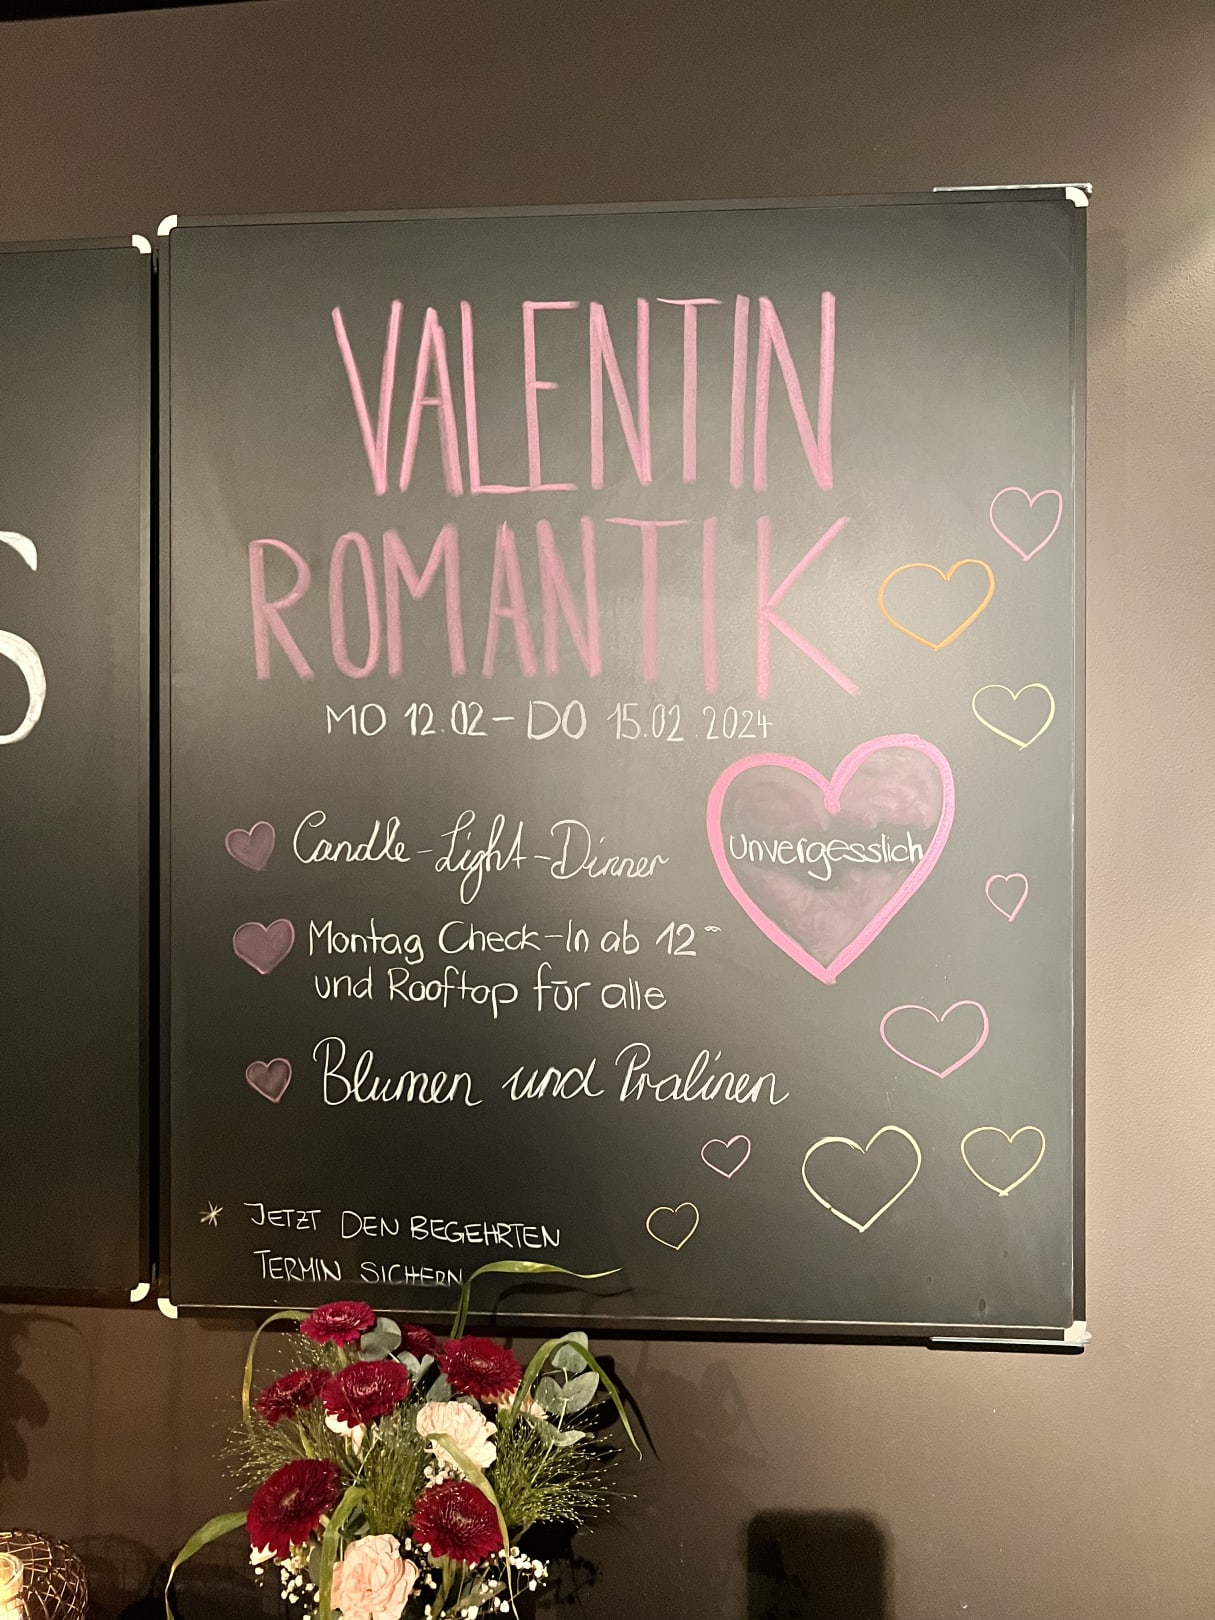 S
VALENTIN
ROMANTIK
MO 12.02 - DO 15.02.2024
Candle-Light-Dinner
unvergesslich
Montag Check-In ab 12°°
und Rooftop für alle
Blumen und Pralinen
* JETZT DEN BEGEHRTEN
TERMIN SICHERN